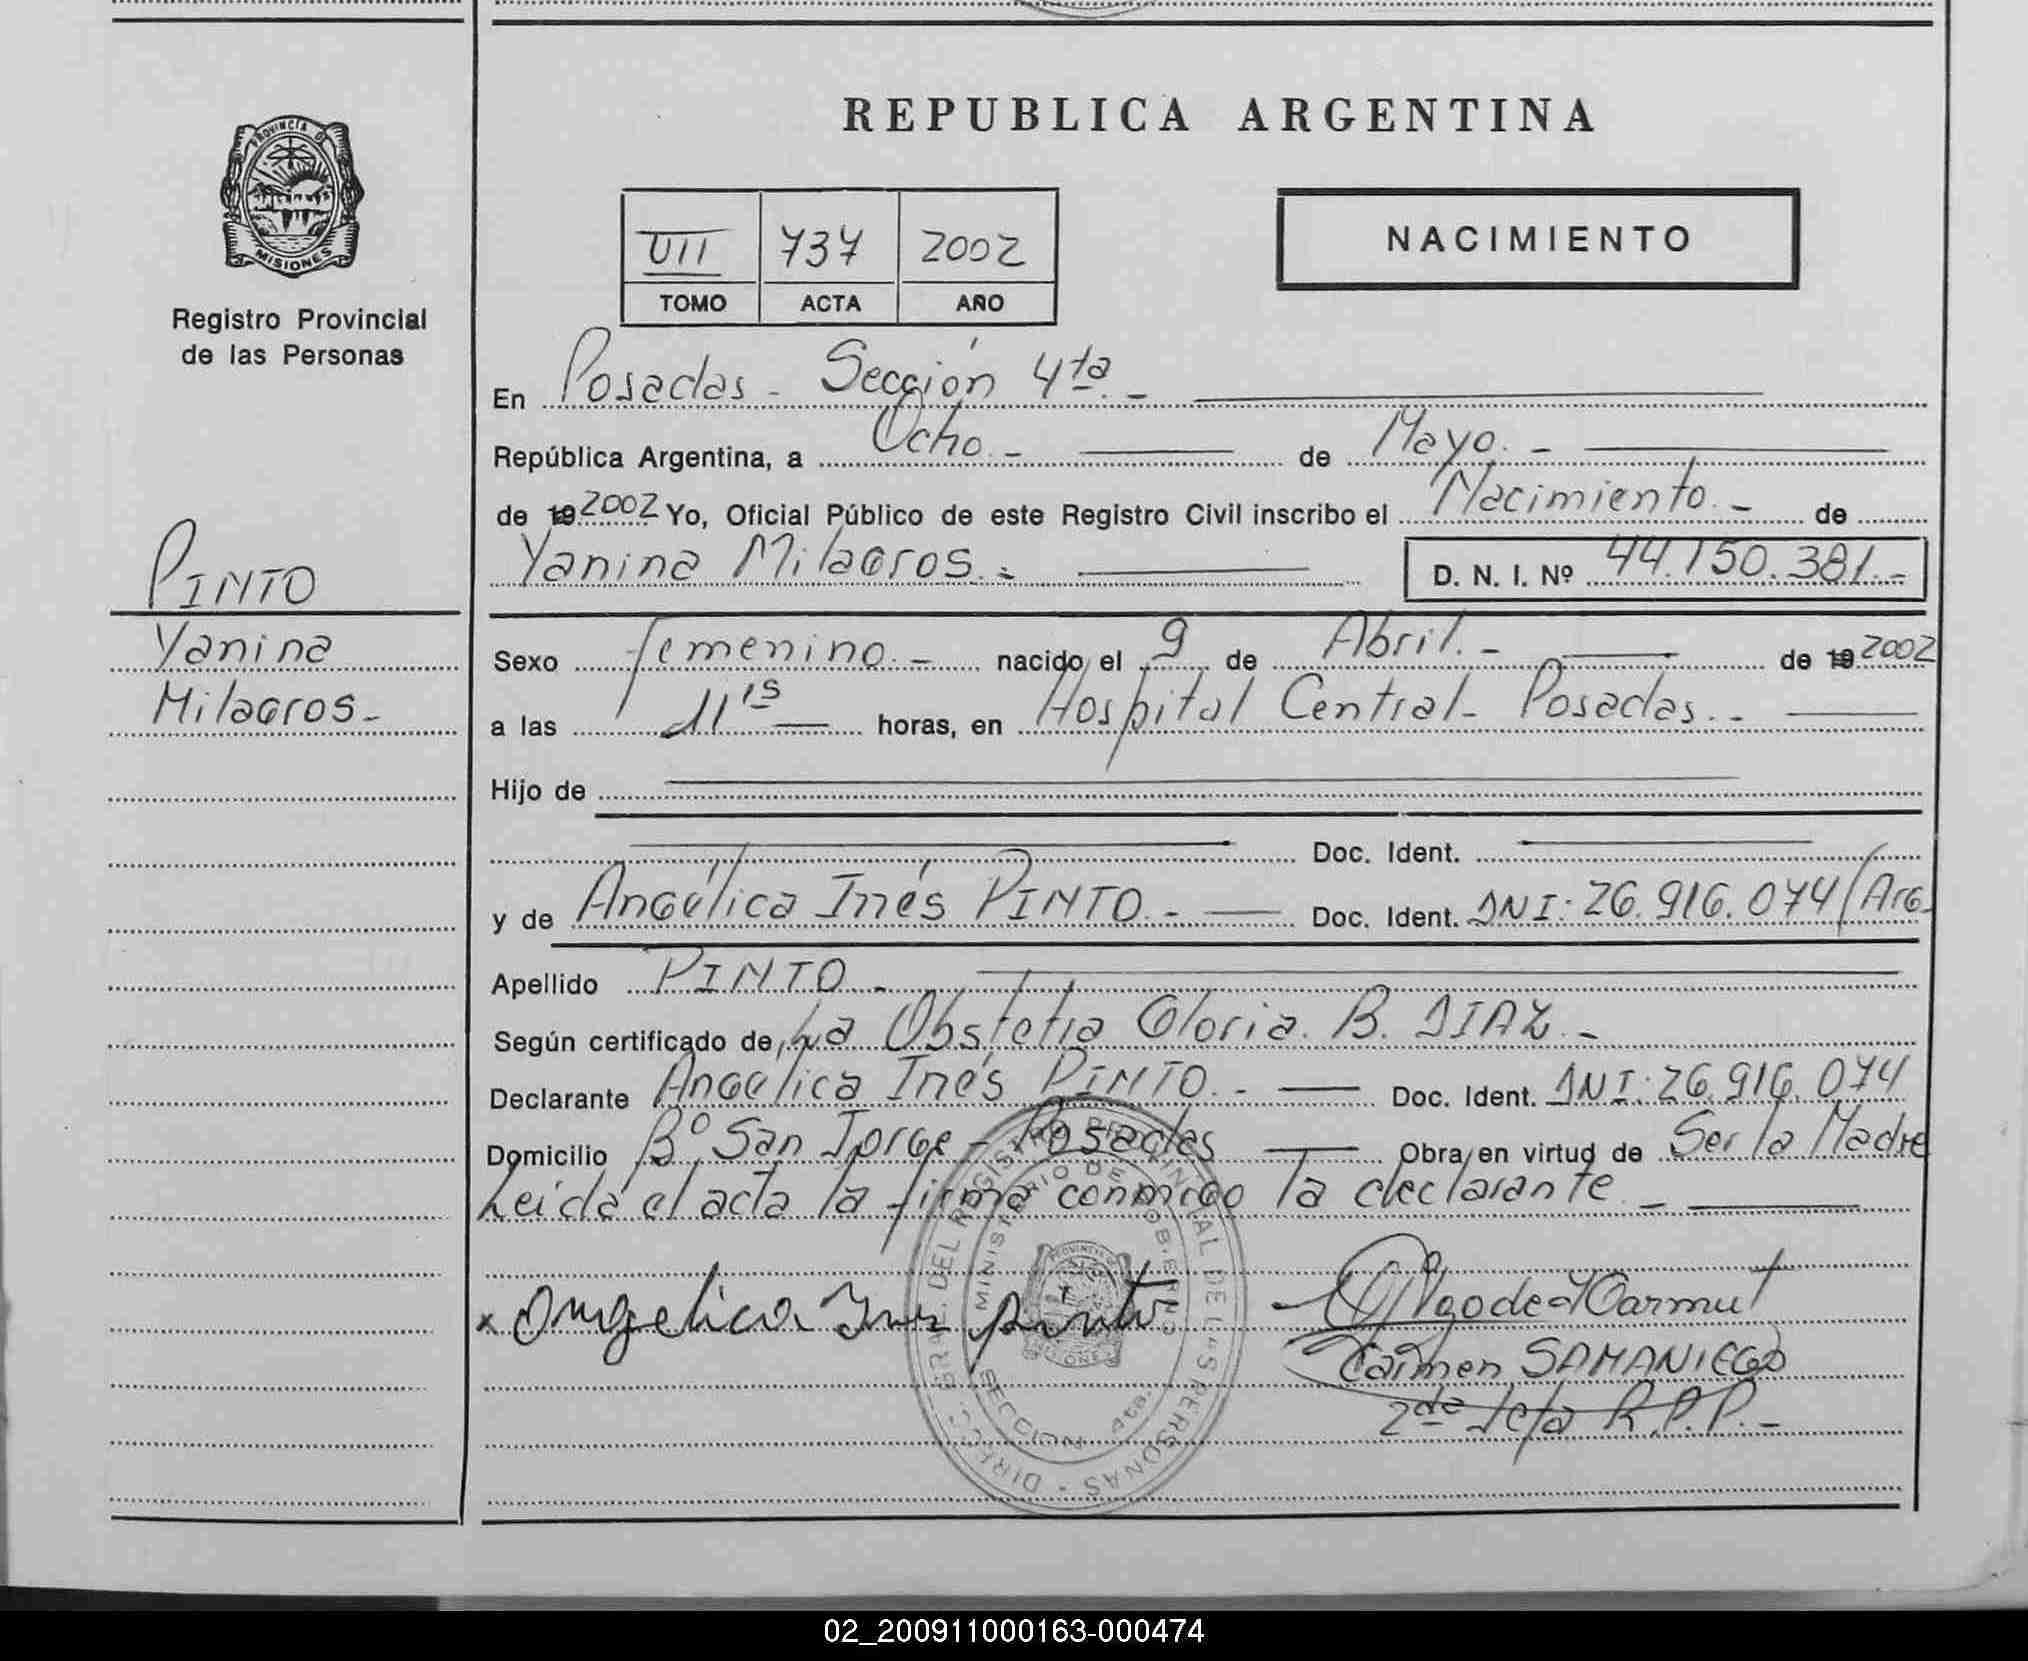 REPUBLICA ARGENTINA
PROVINCIA DE
MISIONES
Registro Provincial
de las Personas
VII 737 2002
TOMO ACTA AÑO
NACIMIENTO
En Posadas - Sección 4ta. -
República Argentina, a Ocho. - de Mayo. -
de 19 2002 Yo, Oficial Público de este Registro Civil inscribo el Nacimiento. - de
Yanina Milagros. - D. N. I. Nº 44.150.381. -
PINTO
Yanina
Milagros -
Sexo femenino. - nacido el 9 de Abril. - de 19 2002
a las 11 15 horas, en Hospital Central - Posadas. -
Hijo de
Doc. Ident.
y de Angélica Inés PINTO. - Doc. Ident. DNI: 26.916.074/Arg.
Apellido PINTO. -
Según certificado de La Obstetra Gloria B. DIAZ. -
Declarante Angélica Inés PINTO. - Doc. Ident. DNI: 26.916.074
Domicilio Bº San Jorge - Posadas Obra en virtud de Ser la Madre
Leída el acta la firma conmigo la declarante. -
x Angelica Ines pinto
Carmen SAMANIEGO
2da Jefa R.P.P. -
DIRECC. GRAL. DEL REGISTRO PROVINCIAL DE LAS PERSONAS
MINISTERIO DE GOBIERNO
SECCION 4ta.
02_200911000163-000474